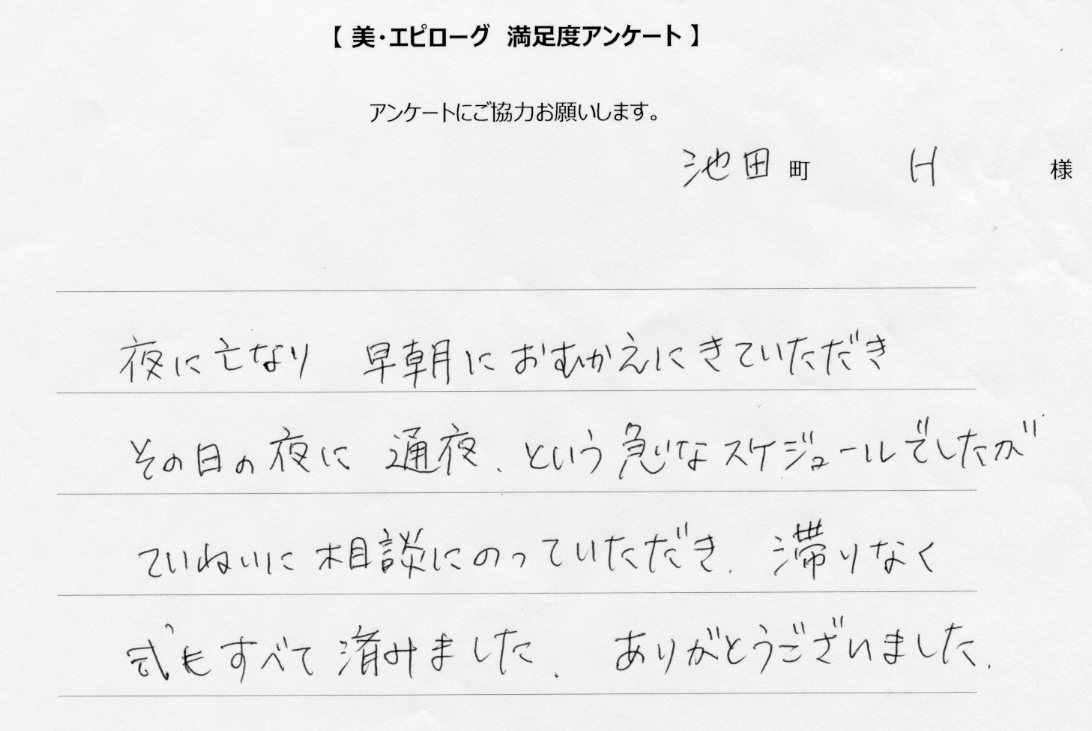 【 美・エピローグ 満足度アンケート 】
アンケートにご協力お願いします。
池田町 H 様
夜に亡なり 早朝におむかえにきていただき
その日の夜に 通夜、という急なスケジュールでしたが
ていねいに相談にのっていただき、滞りなく
式もすべて済みました。 ありがとうございました。